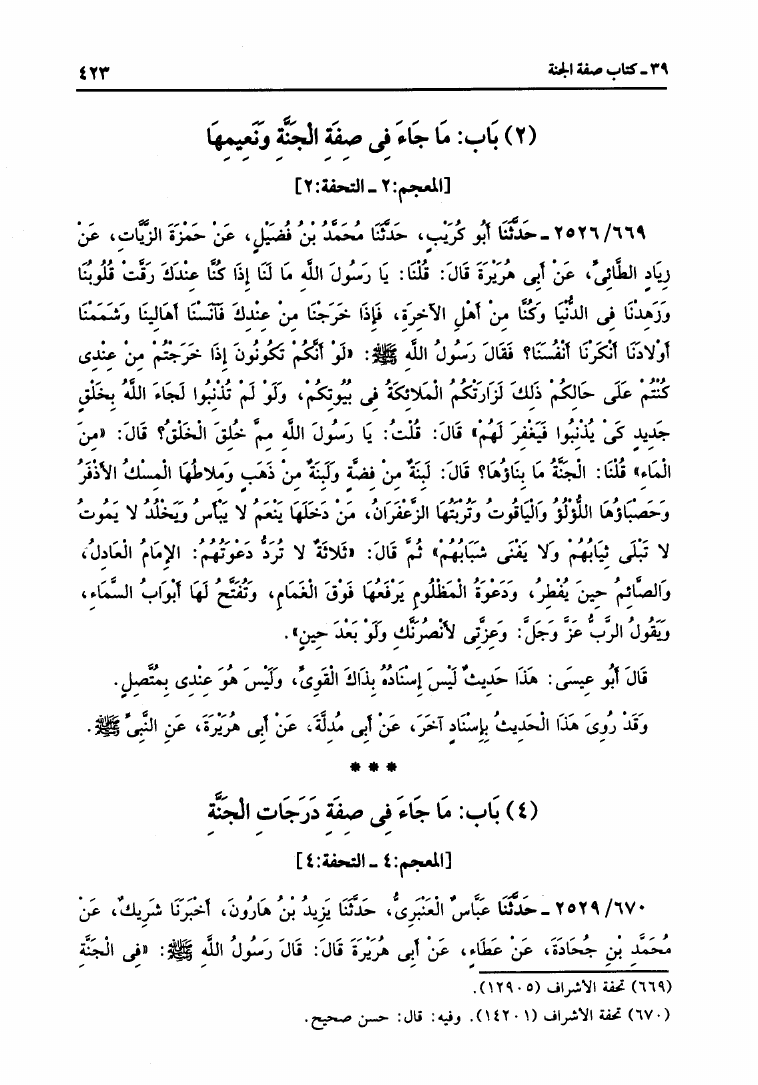 ٣٩ ـ كتاب صفة الجنة
٤٢٣
(٢) بَاب: مَا جَاءَ فِى صِفَةِ الْجَنَّةِ وَنَعِيمِهَا
[المعجم:٢ ـ التحفة:٢]
٢٥٢٦/٦٦٩ ـ حَدَّثَنَا أَبُو كُرَيْبٍ، حَدَّثَنَا مُحَمَّدُ بْنُ فُضَيْلٍ، عَنْ حَمْزَةَ الزَّيَّاتِ، عَنْ
زِيَادٍ الطَّائِىِّ، عَنْ أَبِى هُرَيْرَةَ قَالَ: قُلْنَا: يَا رَسُولَ اللَّهِ مَا لَنَا إِذَا كُنَّا عِنْدَكَ رَقَّتْ قُلُوبُنَا
وَزَهِدْنَا فِى الدُّنْيَا وَكُنَّا مِنْ أَهْلِ الآخِرَةِ، فَإِذَا خَرَجْنَا مِنْ عِنْدِكَ فَآنَسْنَا أَهَالِينَا وَشَمَمْنَا
أَوْلَادَنَا أَنْكَرْنَا أَنْفُسَنَا؟ فَقَالَ رَسُولُ اللَّهِ ﷺ: «لَوْ أَنَّكُمْ تَكُونُونَ إِذَا خَرَجْتُمْ مِنْ عِنْدِى
كُنْتُمْ عَلَى حَالِكُمْ ذَلِكَ لَزَارَتْكُمُ الْمَلَائِكَةُ فِى بُيُوتِكُمْ، وَلَوْ لَمْ تُذْنِبُوا لَجَاءَ اللَّهُ بِخَلْقٍ
جَدِيدٍ كَىْ يُذْنِبُوا فَيَغْفِرَ لَهُمْ» قَالَ: قُلْتُ: يَا رَسُولَ اللَّهِ مِمَّ خُلِقَ الْخَلْقُ؟ قَالَ: «مِنَ
الْمَاءِ» قُلْنَا: الْجَنَّةُ مَا بِنَاؤُهَا؟ قَالَ: لَبِنَةٌ مِنْ فِضَّةٍ وَلَبِنَةٌ مِنْ ذَهَبٍ وَمِلَاطُهَا الْمِسْكُ الأَذْفَرُ
وَحَصْبَاؤُهَا اللُّؤْلُؤُ وَالْيَاقُوتُ وَتُرْبَتُهَا الزَّعْفَرَانُ، مَنْ دَخَلَهَا يَنْعَمُ لَا يَبْأَسُ وَيَخْلُدُ لَا يَمُوتُ
لَا تَبْلَى ثِيَابُهُمْ وَلَا يَفْنَى شَبَابُهُمْ» ثُمَّ قَالَ: «ثَلَاثَةٌ لَا تُرَدُّ دَعْوَتُهُمُ: الإِمَامُ الْعَادِلُ،
وَالصَّائِمُ حِينَ يُفْطِرُ، وَدَعْوَةُ الْمَظْلُومِ يَرْفَعُهَا فَوْقَ الْغَمَامِ، وَتُفَتَّحُ لَهَا أَبْوَابُ السَّمَاءِ،
وَيَقُولُ الرَّبُّ عَزَّ وَجَلَّ: وَعِزَّتِى لأَنْصُرَنَّكِ وَلَوْ بَعْدَ حِينٍ».
قَالَ أَبُو عِيسَى: هَذَا حَدِيثٌ لَيْسَ إِسْنَادُهُ بِذَاكَ الْقَوِىِّ، وَلَيْسَ هُوَ عِنْدِى بِمُتَّصِلٍ.
وَقَدْ رُوِىَ هَذَا الْحَدِيثُ بِإِسْنَادٍ آخَرَ، عَنْ أَبِى مُدِلَّةَ، عَنْ أَبِى هُرَيْرَةَ، عَنِ النَّبِىِّ ﷺ.
* * *
(٤) بَاب: مَا جَاءَ فِى صِفَةِ دَرَجَاتِ الْجَنَّةِ
[المعجم:٤ ـ التحفة:٤]
٢٥٢٩/٦٧٠ ـ حَدَّثَنَا عَبَّاسٌ الْعَنْبَرِىُّ، حَدَّثَنَا يَزِيدُ بْنُ هَارُونَ، أَخْبَرَنَا شَرِيكٌ، عَنْ
مُحَمَّدِ بْنِ جُحَادَةَ، عَنْ عَطَاءٍ، عَنْ أَبِى هُرَيْرَةَ قَالَ: قَالَ رَسُولُ اللَّهِ ﷺ: «فِى الْجَنَّةِ
(٦٦٩) تحفة الأشراف (١٢٩٠٥).
(٦٧٠) تحفة الأشراف (١٤٢٠١). وفيه: قال: حسن صحيح.